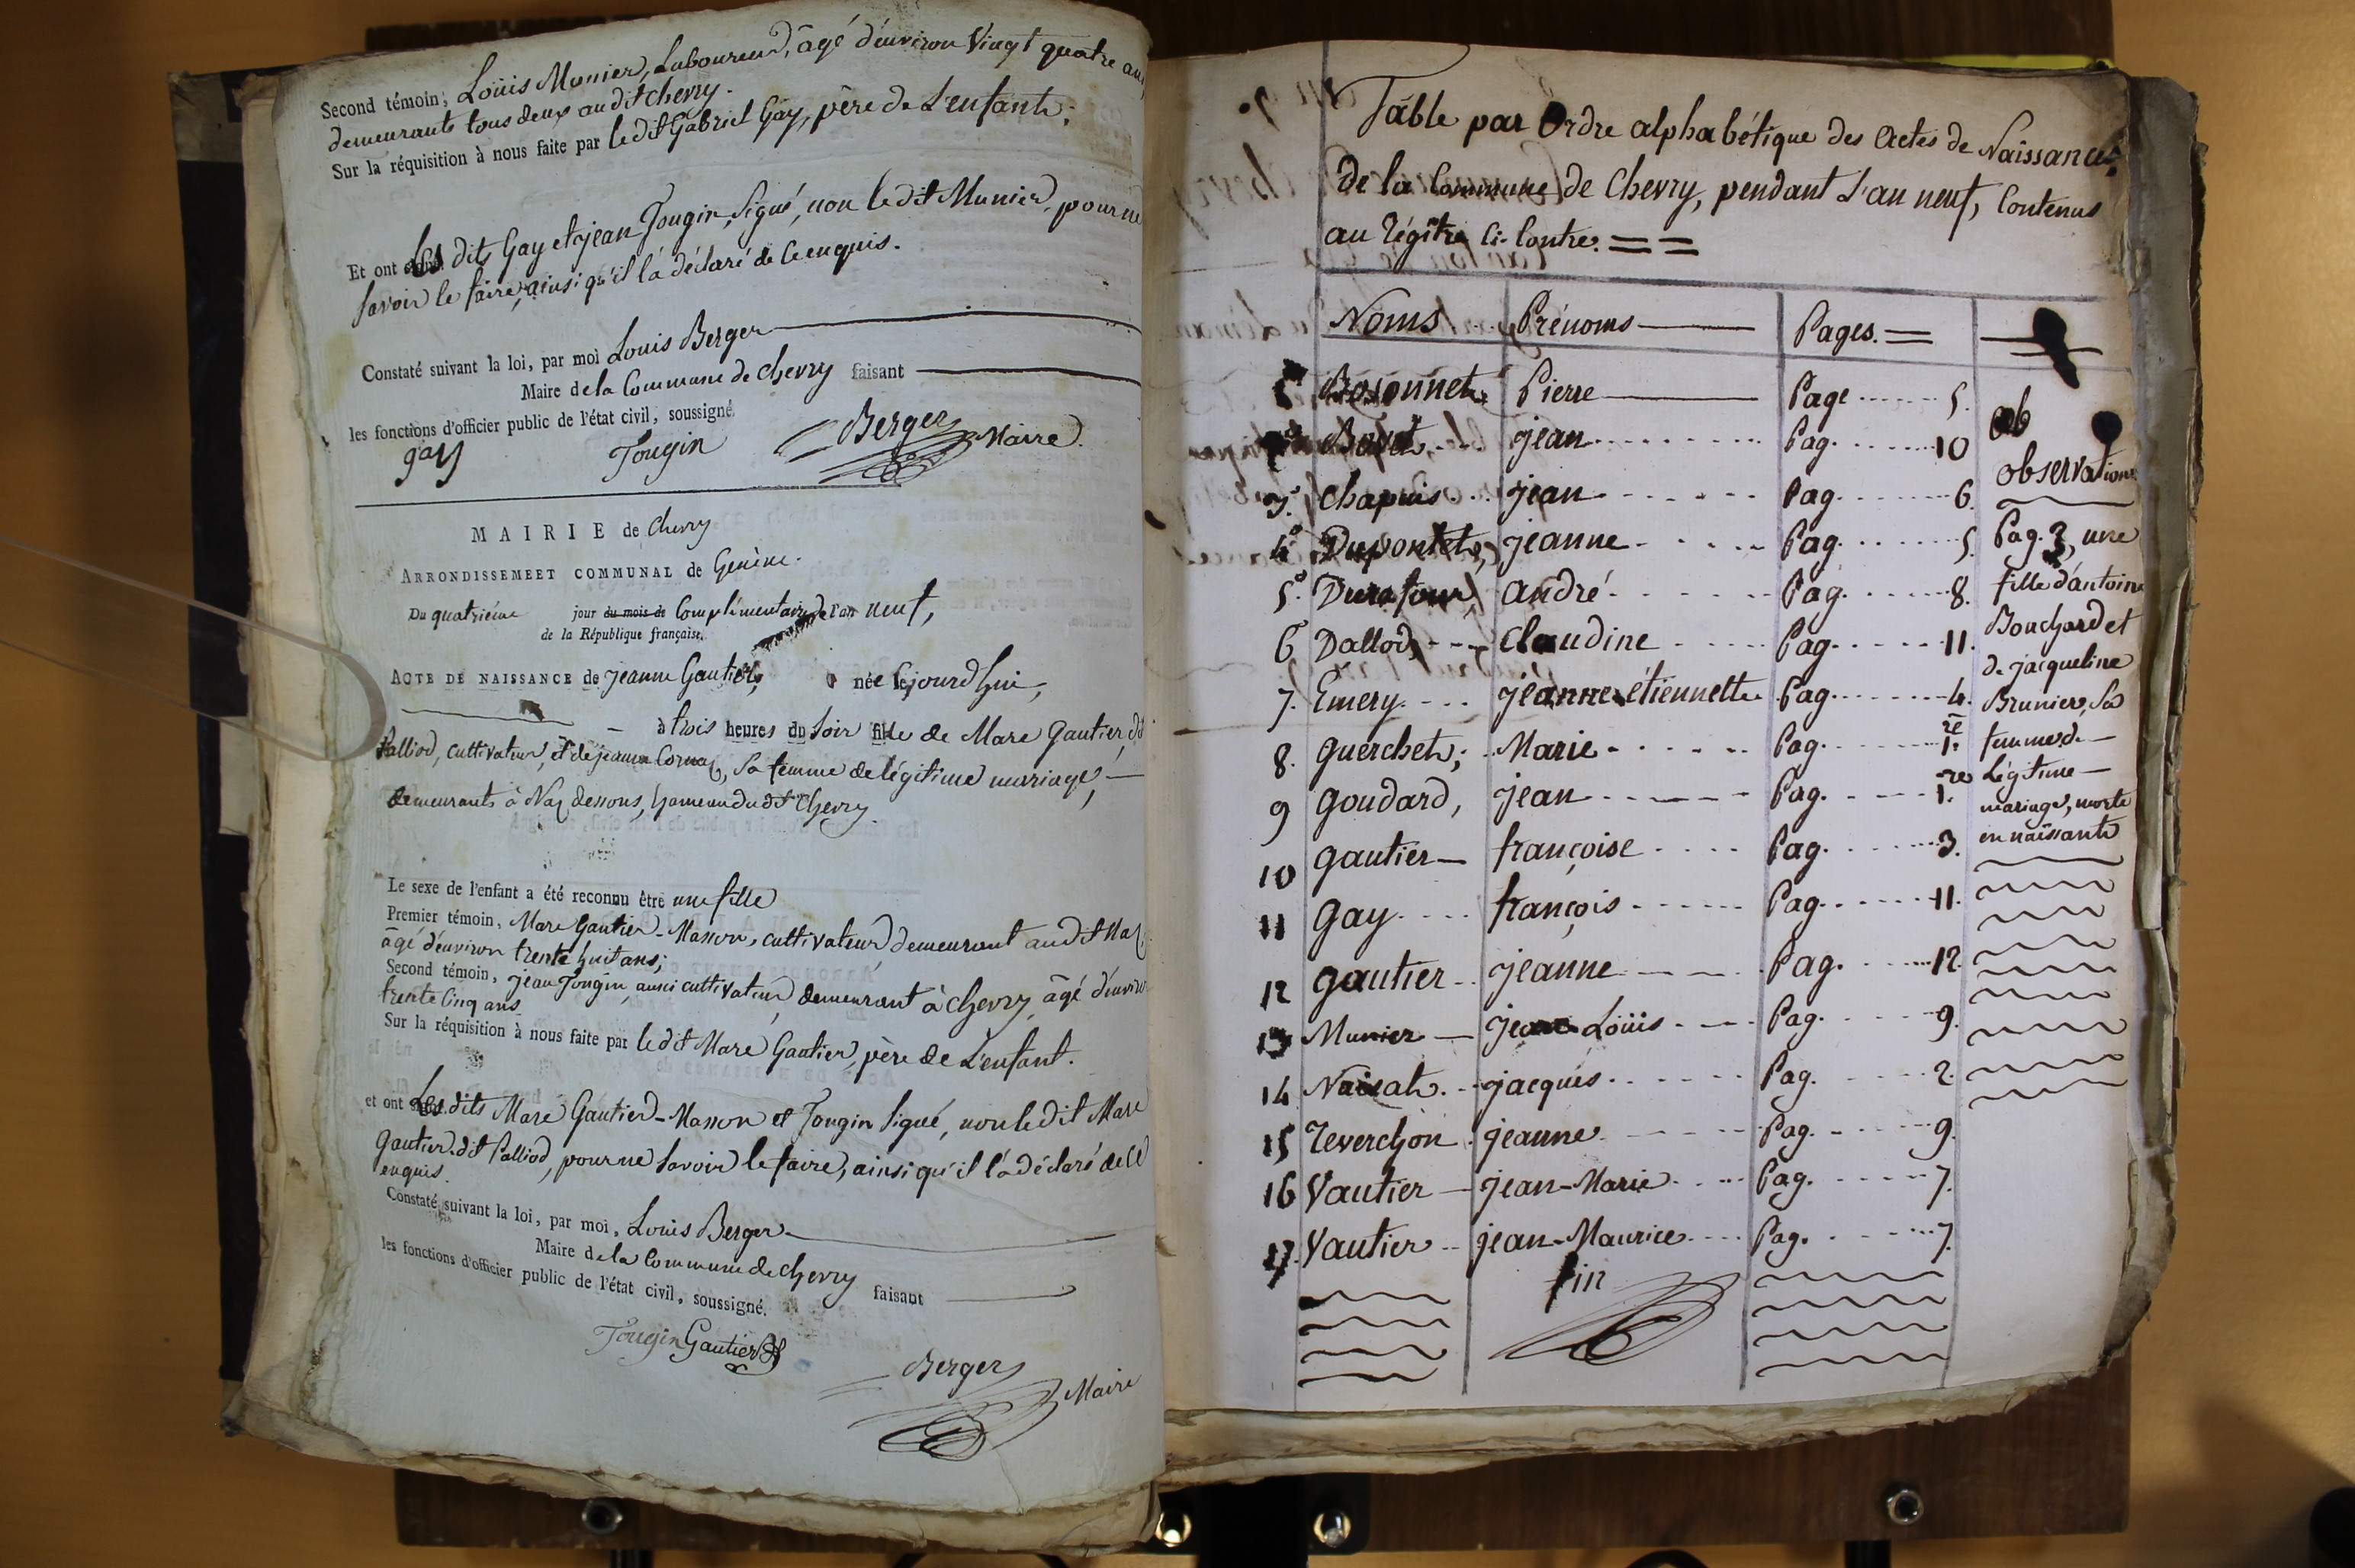 Second témoin, Loüis Munier, Laboureur, âgé d'environ Vingt quatre ans
demeurants tous deux audit chevry.
Sur la réquisition à nous faite par ledit Gabriel Gay, père de L'enfant;
Et ont Les dits Gay et jean Tougin, Signé, non ledit Munier, pour ne
savoir le faire, ainsi qu'il l'a déclaré de ce enquis.
Constaté suivant la loi, par moi Louis Berger
Maire de la Commune de chevry faisant
les fonctions d'officier public de l'état civil, soussigné.
gay Tougin Berger Maire.
MAIRIE de Chevry
ARRONDISSEMEET COMMUNAL de Genève.
Du quatrième jour du mois de Complémentaire de l'an neuf,
de la République française.
ACTE DE NAISSANCE de Jeanne Gautier, née cejourd'hui,
à trois heures du soir fille de Marc Gautier, dit
Palliod, cultivateur, et de jeanne Cornaz, sa femme de légitime mariage,
demeurants à Naz dessous, hameau dudit Chevry.
Le sexe de l'enfant a été reconnu être une fille
Premier témoin, Marc Gautier-Masson, cultivateur, demeurant audit Naz,
âgé d'environ trente huit ans;
Second témoin, jean Tougin, aussi cultivateur, demeurant à chevry, âgé d'environ
trente Cinq ans.
Sur la réquisition à nous faite par ledit Marc Gautier, père de L'enfant.
et ont Les dits Marc Gautier-Masson et Tougin Signé, non ledit Marc
Gautier dit Palliod, pour ne savoir le faire, ainsi qu'il l'a déclaré de ce
enquis.
Constaté suivant la loi, par moi, Louis Berger
Maire de la Commune de chevry faisant
les fonctions d'officier public de l'état civil, soussigné.
Tougin Gautier
Berger Maire
Table par Ordre alphabétique des Actes de Naissances
de la Commune de Chevry, pendant L'an neuf, Contenus
au régître Ci-Contre.
Noms Prénoms Pages.
Bosonnet, Pierre Page 5.
Bovet jean Pag. 10
3. Chapuis jean Pag. 6.
4. Dupontet, jeanne Pag. 5.
5. Durafour, andré Pag. 8.
6 Dallod, Claudine Pag. 11.
7. Emery jeanne-étiennette Pag. 4.
8. guerchet; Marie Pag. 1.re
9 goudard, jean Pag. 1.re
10 gautier françoise Pag. 3.
11 gay françois Pag. 11.
12 gautier jeanne Pag. 12.
13 Munier jean-Loüis Pag. 9.
14 Naicat jacques Pag. 2.
15 Reverchon jeanne Pag. 9.
16 Vautier jean-Marie Pag. 7.
17. Vautier jean-Maurice Pag. 7.
fin
ob
observations
Pag. 3, une
fille d'antoine
Bouchard et
de jacqueline
Brunier, Sa
femme de
Légitime
mariage, morte
en naissant